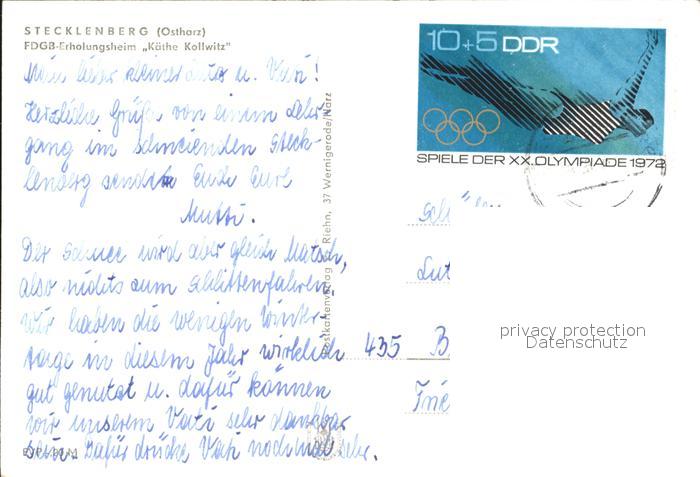 STECKLENBERG (Ostharz)
FDGB-Erholungsheim „Käthe Kollwitz"
Mein lieber kleiner u. Vati!
Herzliche Grüße von einem Lehr-
gang im schneienden Steck-
lenberg sendet Euch Eure
Mutti.
Der Schnee wird aber gleich Matsch,
also nichts zum Schlittenfahren.
Wir haben die wenigen Winter-
tage in diesem Jahr wirklich
gut genutzt u. dafür können
wir unserem Vati sehr dankbar
sein. Dafür drücke Vati nochmal sehr.
Riehn, 37 Wernigerode/Harz
10+5 DDR
SPIELE DER XX.OLYMPIADE 1972
Sch
Lut
435 B
Frie
privacy protection
Datenschutz